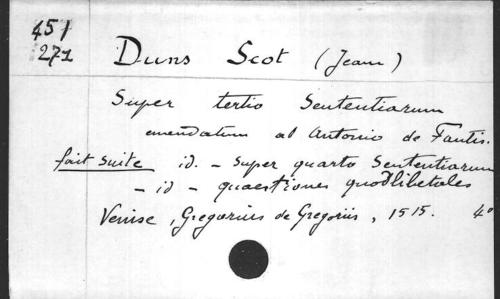 451
271
Duns Scot (Jean)
Super tertio Sententiarum
emendatum ab Antonio de Fantis.
fait suite id. - super quarto Sententiarum
- id - quaestiones quodlibetales
Venise, Gregorius de Gregoriis, 1515. 4°